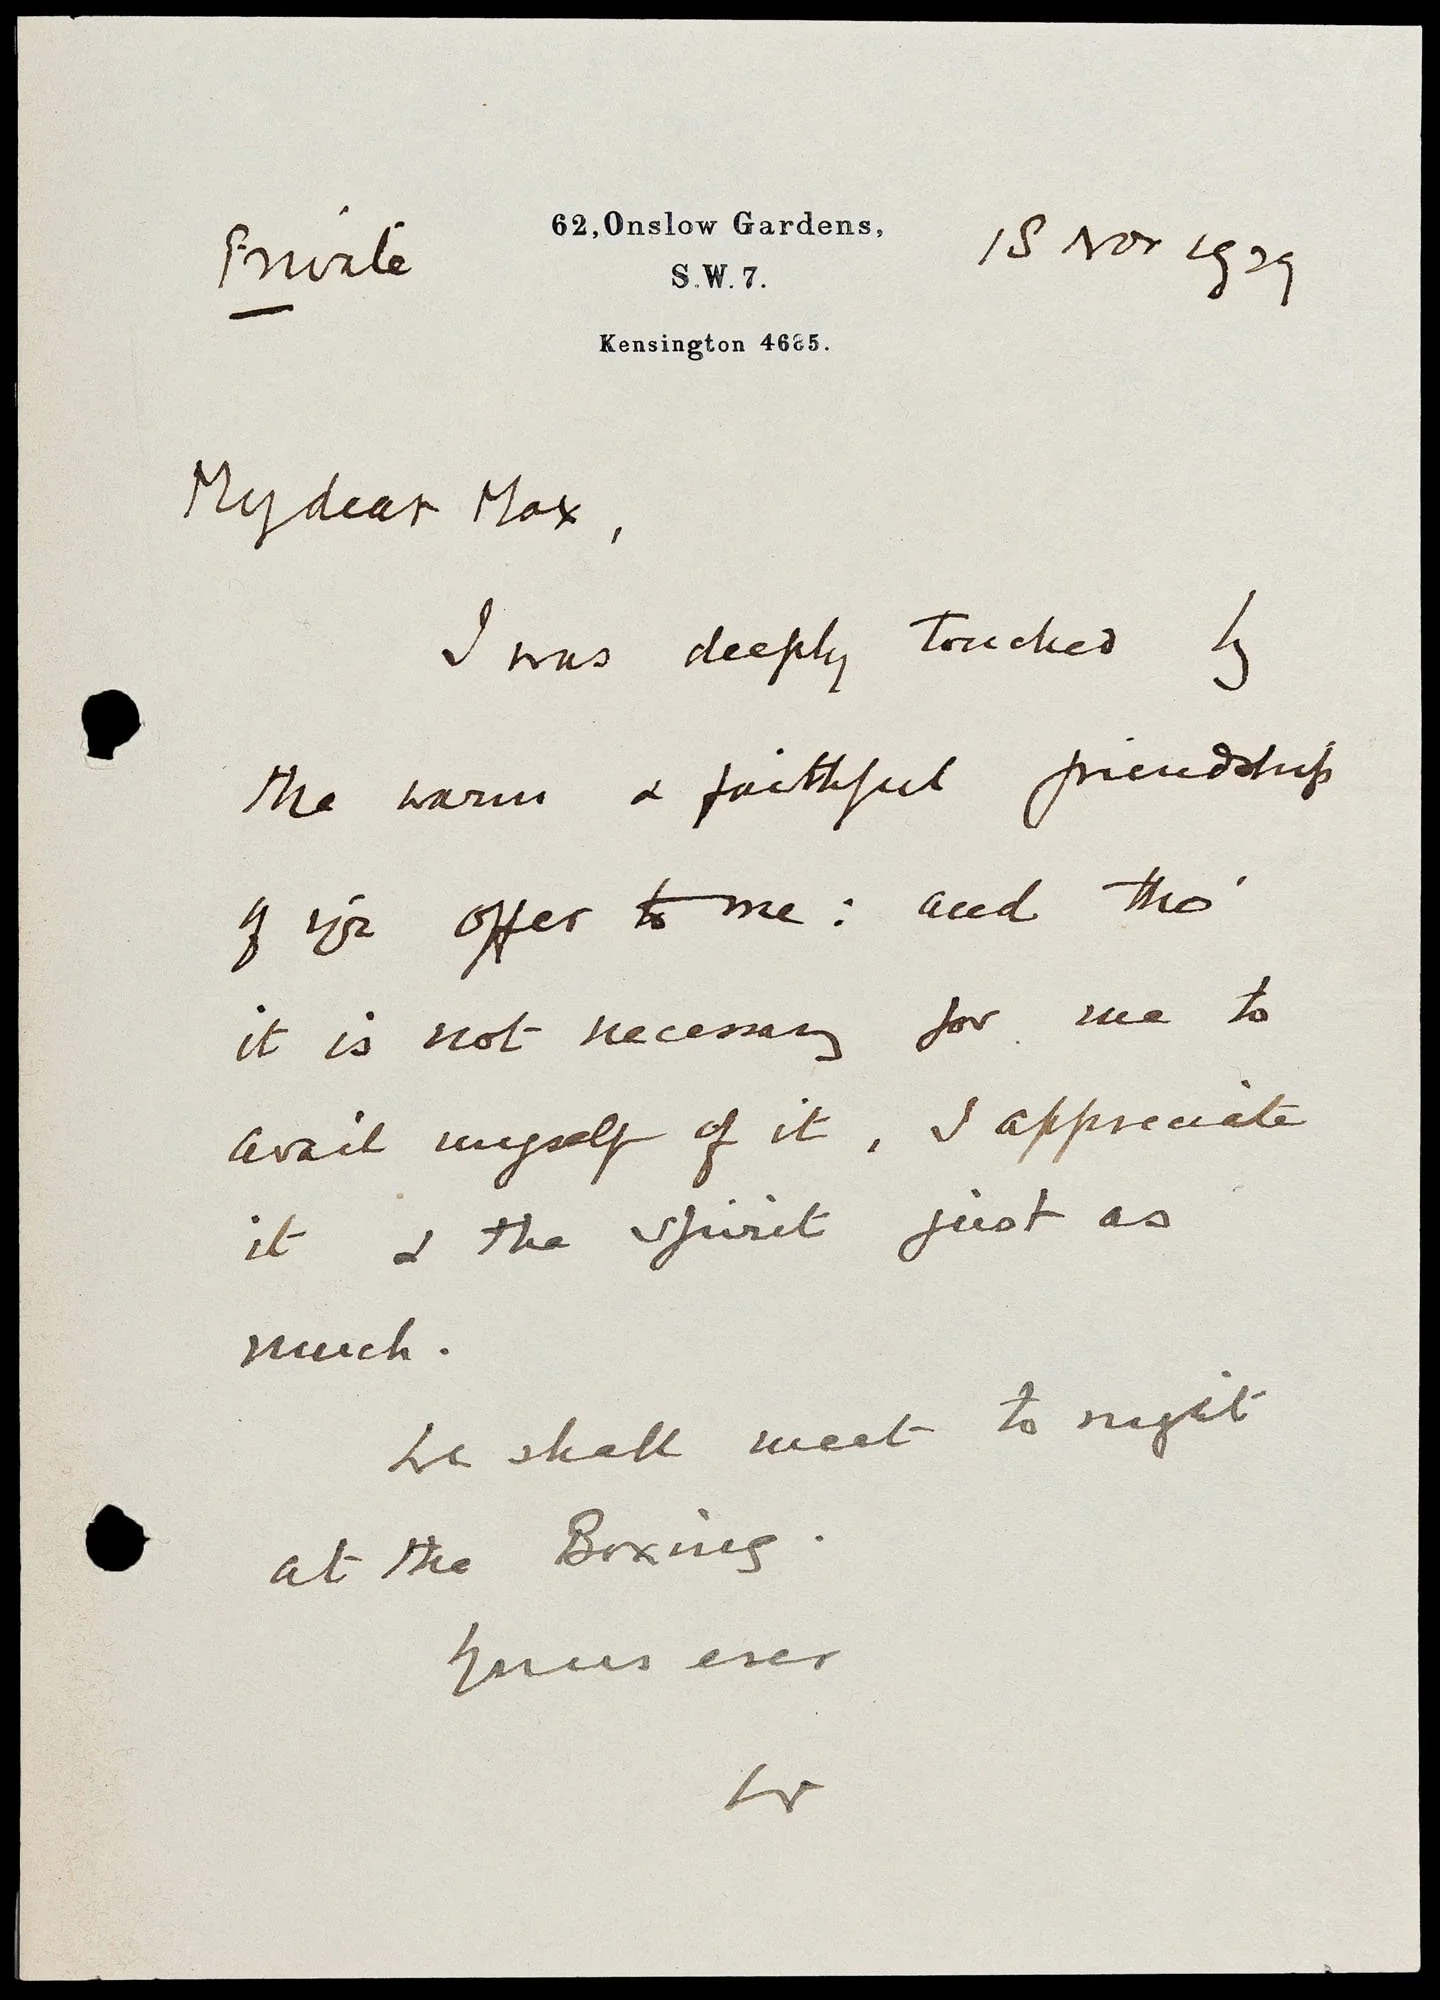 Private
62, Onslow Gardens,
S.W. 7.
Kensington 4685.
18 Nov 1929
My dear Max,
I was deeply touched by
the warm & faithful friendship
of yr offer to me : and tho'
it is not necessary for me to
avail myself of it, I appreciate
it & the spirit just as
much.
We shall meet to night
at the Boxing.
Yours ever
W